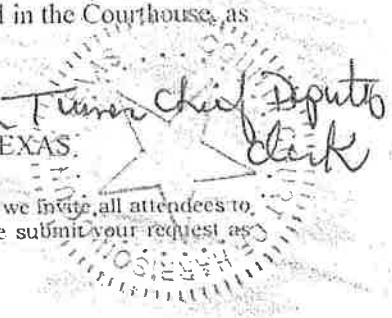 in the Courthouse, as
Turner Chief Deputy
EXAS
clerk
we invite all attendees to
submit your request as
HARRISON